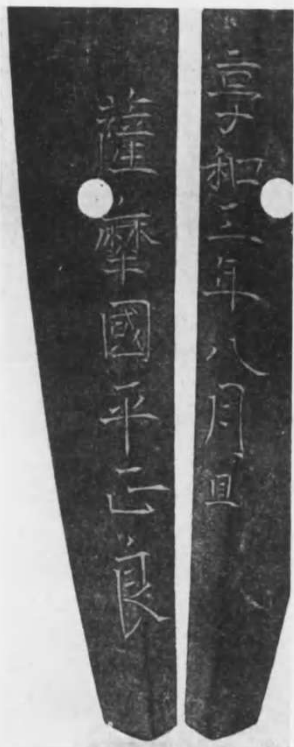 享和三年八月日
薩摩國平正良